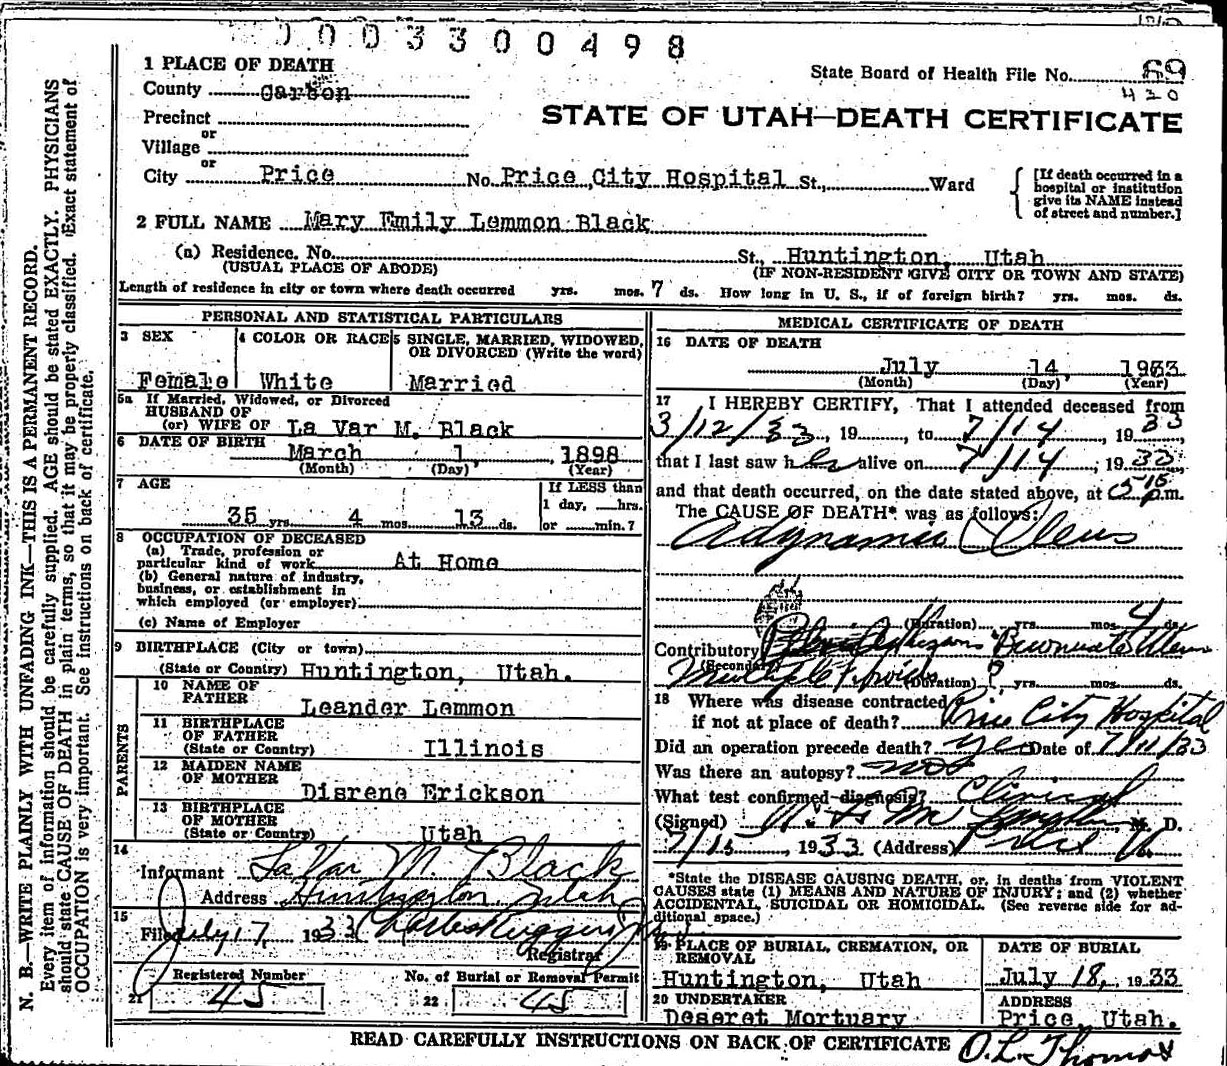 0003300498
1 PLACE OF DEATH
State Board of Health File No. 69
430
County Carbon
STATE OF UTAH—DEATH CERTIFICATE
Precinct
or
Village
or
City Price No. Price City Hospital St., Ward
[If death occurred in a hospital or institution give its NAME instead of street and number.]
2 FULL NAME Mary Emily Lemmon Black
(a) Residence. No. St., Huntington, Utah
(USUAL PLACE OF ABODE) (IF NON-RESIDENT GIVE CITY OR TOWN AND STATE)
Length of residence in city or town where death occurred yrs. mos. 7 ds. How long in U. S., if of foreign birth? yrs. mos. ds.
PERSONAL AND STATISTICAL PARTICULARS
3 SEX Female
4 COLOR OR RACE White
5 SINGLE, MARRIED, WIDOWED, OR DIVORCED (Write the word) Married
5a If Married, Widowed, or Divorced
HUSBAND OF
(or) WIFE OF La Var M. Black
6 DATE OF BIRTH March 1, 1898
(Month) (Day) (Year)
7 AGE
35 yrs. 4 mos. 13 ds.
If LESS than
1 day, hrs.
or min.?
8 OCCUPATION OF DECEASED
(a) Trade, profession or
particular kind of work At Home
(b) General nature of industry,
business, or establishment in
which employed (or employer)
(c) Name of Employer
9 BIRTHPLACE (City or town)
(State or Country) Huntington, Utah.
PARENTS
10 NAME OF FATHER Leander Lemmon
11 BIRTHPLACE OF FATHER
(State or Country) Illinois
12 MAIDEN NAME OF MOTHER Disrene Erickson
13 BIRTHPLACE OF MOTHER
(State or Country) Utah
14
Informant LaVar M. Black
Address Huntington Utah
15
Filed July 17, 1933
Registrar
Registered Number
21 45
No. of Burial or Removal Permit
22 45
MEDICAL CERTIFICATE OF DEATH
16 DATE OF DEATH
July 14, 1933
(Month) (Day) (Year)
17 I HEREBY CERTIFY, That I attended deceased from
3/12/33, 19, to 7/14, 1933,
that I last saw her alive on 7/14, 1933,
and that death occurred, on the date stated above, at 5:15 p.m.
The CAUSE OF DEATH* was as follows:
Adynamic Ileus
(Duration) yrs. mos. 4 ds.
Contributory
(Secondary) Multiple Fibroids (Duration) ? yrs. mos. ds.
18 Where was disease contracted
if not at place of death? Price City Hospital
Did an operation precede death? yes Date of 7/11/33
Was there an autopsy? no
What test confirmed diagnosis? Clinical
(Signed) M. D.
7/15, 1933 (Address) Price U.
*State the DISEASE CAUSING DEATH, or, in deaths from VIOLENT
CAUSES state (1) MEANS AND NATURE OF INJURY; and (2) whether
ACCIDENTAL, SUICIDAL OR HOMICIDAL. (See reverse side for additional space.)
19 PLACE OF BURIAL, CREMATION, OR REMOVAL
Huntington, Utah
DATE OF BURIAL
July 18, 1933
20 UNDERTAKER
Deseret Mortuary
ADDRESS
Price, Utah.
READ CAREFULLY INSTRUCTIONS ON BACK OF CERTIFICATE O.L. Thomas
N. B.—WRITE PLAINLY WITH UNFADING INK—THIS IS A PERMANENT RECORD.
Every item of information should be carefully supplied. AGE should be stated EXACTLY. PHYSICIANS
should state CAUSE OF DEATH in plain terms, so that it may be properly classified. Exact statement of
OCCUPATION is very important. See instructions on back of certificate.